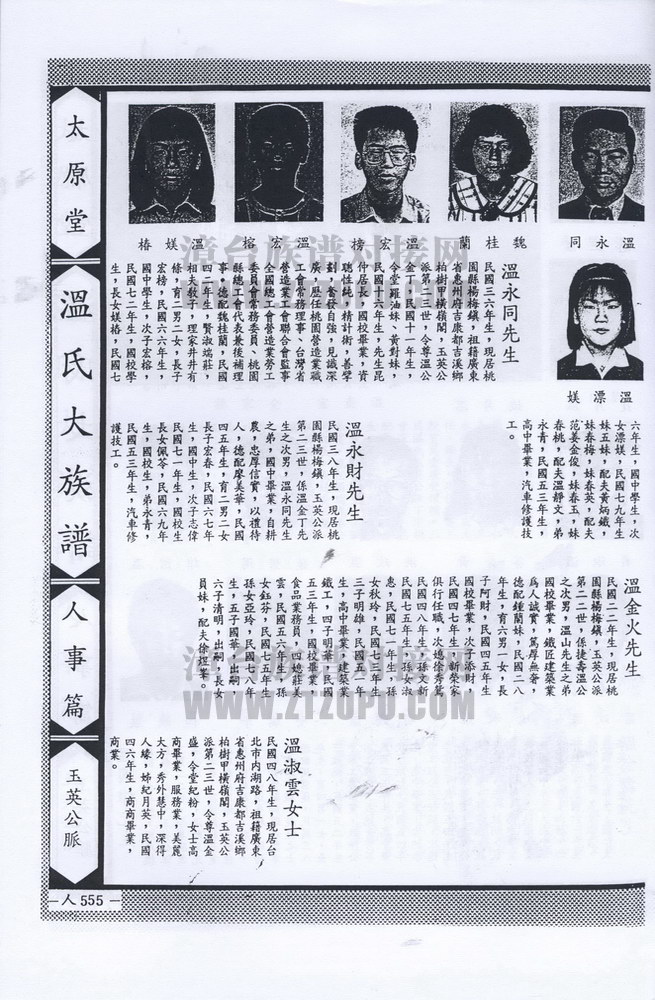 太原堂
溫氏大族譜
人事篇
玉英公脈
人 555
溫永同
魏桂蘭
溫宏榜
溫宏榕
溫媄椿
溫漂媄
溫永同先生
民國三六年生，現居桃
園縣楊梅鎮，祖籍廣東
省惠州府吉康都吉溪鄉
柏樹甲橫嶺閣，玉英公
派第二三世，令尊溫公
金丁，民國十一年生，
令堂羅油妹、黃對妹，
民國十六年生，先生昆
仲居長，國校畢業，資
聰性純，精計術，善擘
劃，奮發自強，見識深
廣，歷任桃園營造業職
工會常務理事、台灣省
營造業工會聯合會監事
全國總工會營造業勞工
委員會常務委員、桃園
縣總工會代表兼後補理
事，德配魏桂蘭，民國
四二年生，賢淑端莊，
相夫敎子，理家井井有
條，育二男二女，長子
宏榜，民國六六年生，
國中學生，次子宏榕，
民國七二年生，國校學
生，長女媄椿，民國七
六年生，國中學生，次
女漂媄，民國七九年生
妹五妹，配夫黃炳鐵，
妹春梅，妹春英，配夫
范姜金俊，妹春玉，妹
春桃，配夫溫靜文，弟
永青，民國五三年生，
高中畢業，汽車修護技
工。
溫永財先生
民國三八年生，現居桃
園縣楊梅鎮，玉英公派
第二三世，係溫金丁先
生之次男，溫永同先生
之弟，國中畢業，自耕
農，忠厚信實，以禮待
人，德配廖美華，民國
四五年生，育二男二女
長子宏春，民國六七年
生，國中生，次子志偉
民國七一年生，國校生
長女佩苓，民國六九年
生，國校生，弟永青，
民國五三年生，汽車修
護技工。
溫金火先生
民國二二年生，現居桃
園縣楊梅鎮，玉英公派
第二二世，係捷壽溫公
之次男，溫山先生之弟
國校畢業，鐵匠建築業
爲人誠實，篤厚無奢，
德配鍾蘭妹，民國二八
年生，育六男一女，長
子阿財，民國四五年生
國校畢業，次子添財，
民國四七年生，新榮家
俱行任職，次媳徐秀鶯
民國四八年生，孫文新
民國七五年生，孫女淑
惠，民國七一年生，孫
女秋玲，民國七七年生
三子明雄，民國五一年
生，高中畢業，建築業
鐵工，四子明華，民國
五三年生，國校畢業，
食品業務員，四媳莊美
雲，民國五六年生，孫
女鈺芬，民國七五年生
孫女亞玲，民國七八年
生，五子國華，出嗣，
六子清明，出嗣，長女
員妹，配夫徐煜峯。
溫淑雲女士
民國四八年生，現居台
北市內湖路，祖籍廣東
省惠州府吉康都吉溪鄉
柏樹甲橫嶺閣，玉英公
派第二三世，令尊溫金
盛，令堂紀粉，女士高
商畢業，服務業，美麗
大方，秀外慧中，深得
人緣，姊紀月英，民國
四六年生，商商畢業，
商業。
漳台族谱对接网
漳台族谱对接网
WWW.ZTZUPU.COM